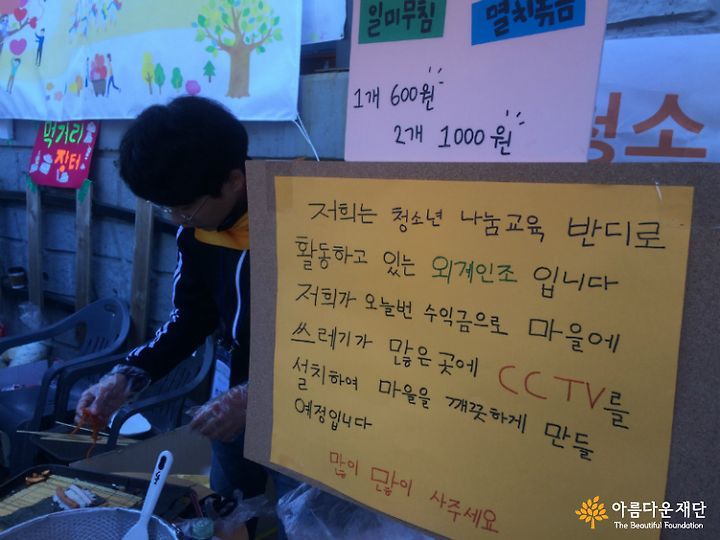 일미무침
멸치볶음
1개 600원
2개 1000원
먹거리
장터
청소
저희는 청소년 나눔교육 반디로
활동하고 있는 외계인조 입니다
저희가 오늘번 수익금으로 마을에
쓰레기가 많은 곳에 CCTV를
설치하여 마을을 깨끗하게 만들
예정입니다
많이 많이 사주세요
아름다운재단
The Beautiful Foundation